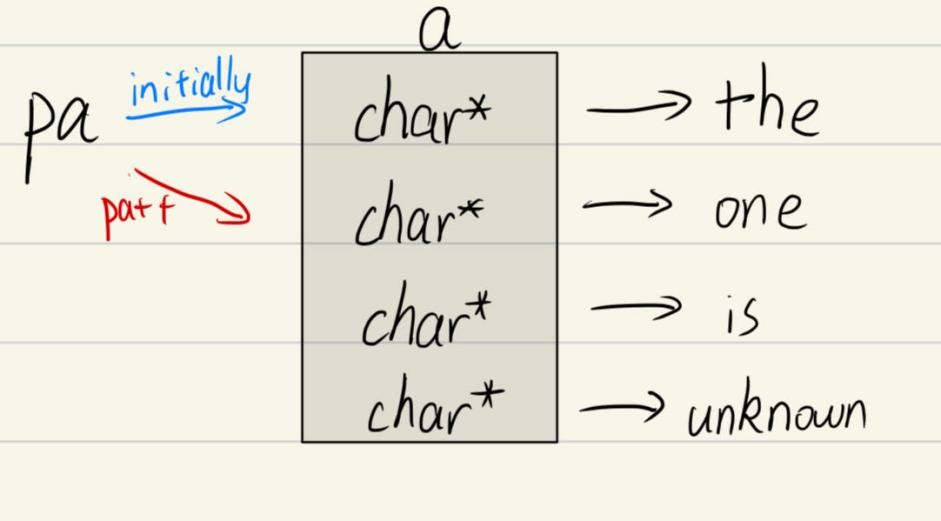 a
pa initially char* → the
pa++ char* → one
char* → is
char* → unknown